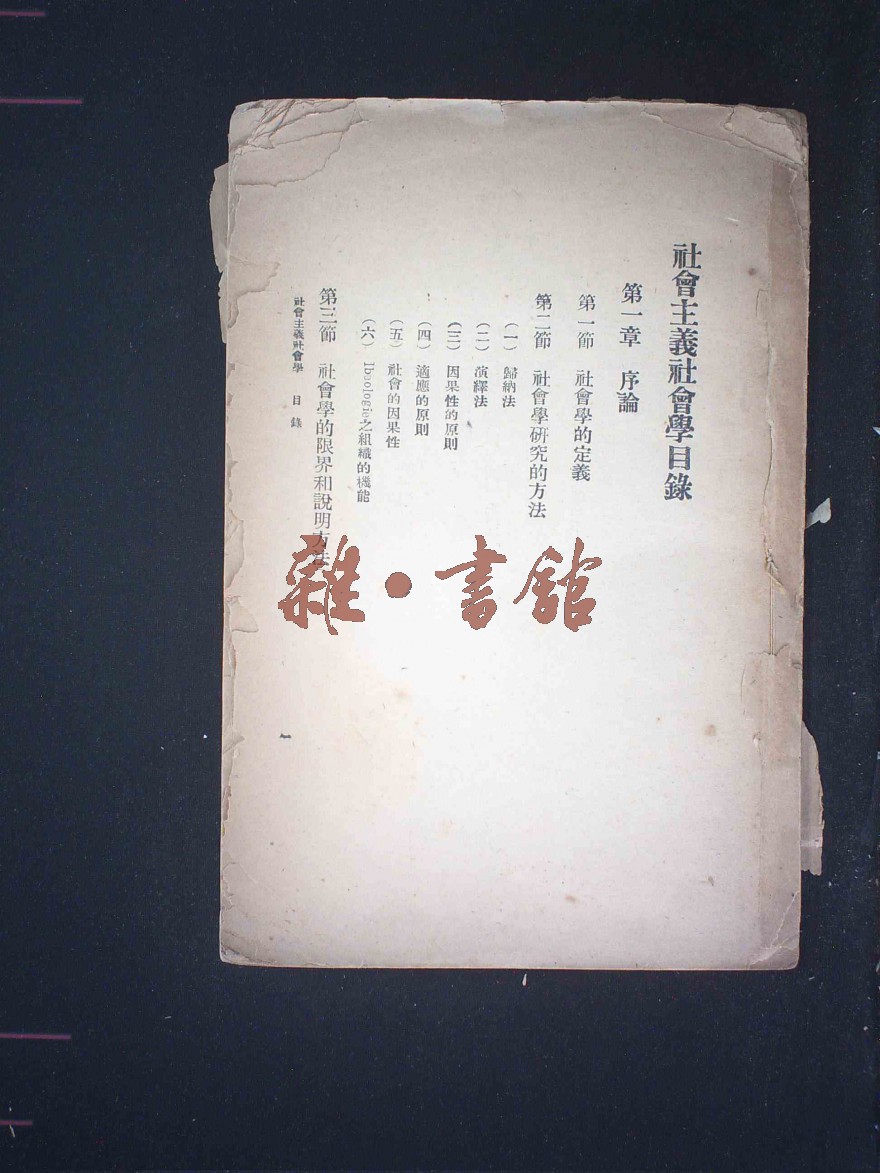 社會主義社會學目錄
第一章 序論
第一節 社會學的定義
第二節 社會學硏究的方法
（一）歸納法
（二）演繹法
（三）因果性的原則
（四）適應的原則
（五）社會的因果性
（六）Ibeologie之組織的機能
第三節 社會學的限界和說明方法
社會主義社會學 目錄
一
雜·書館